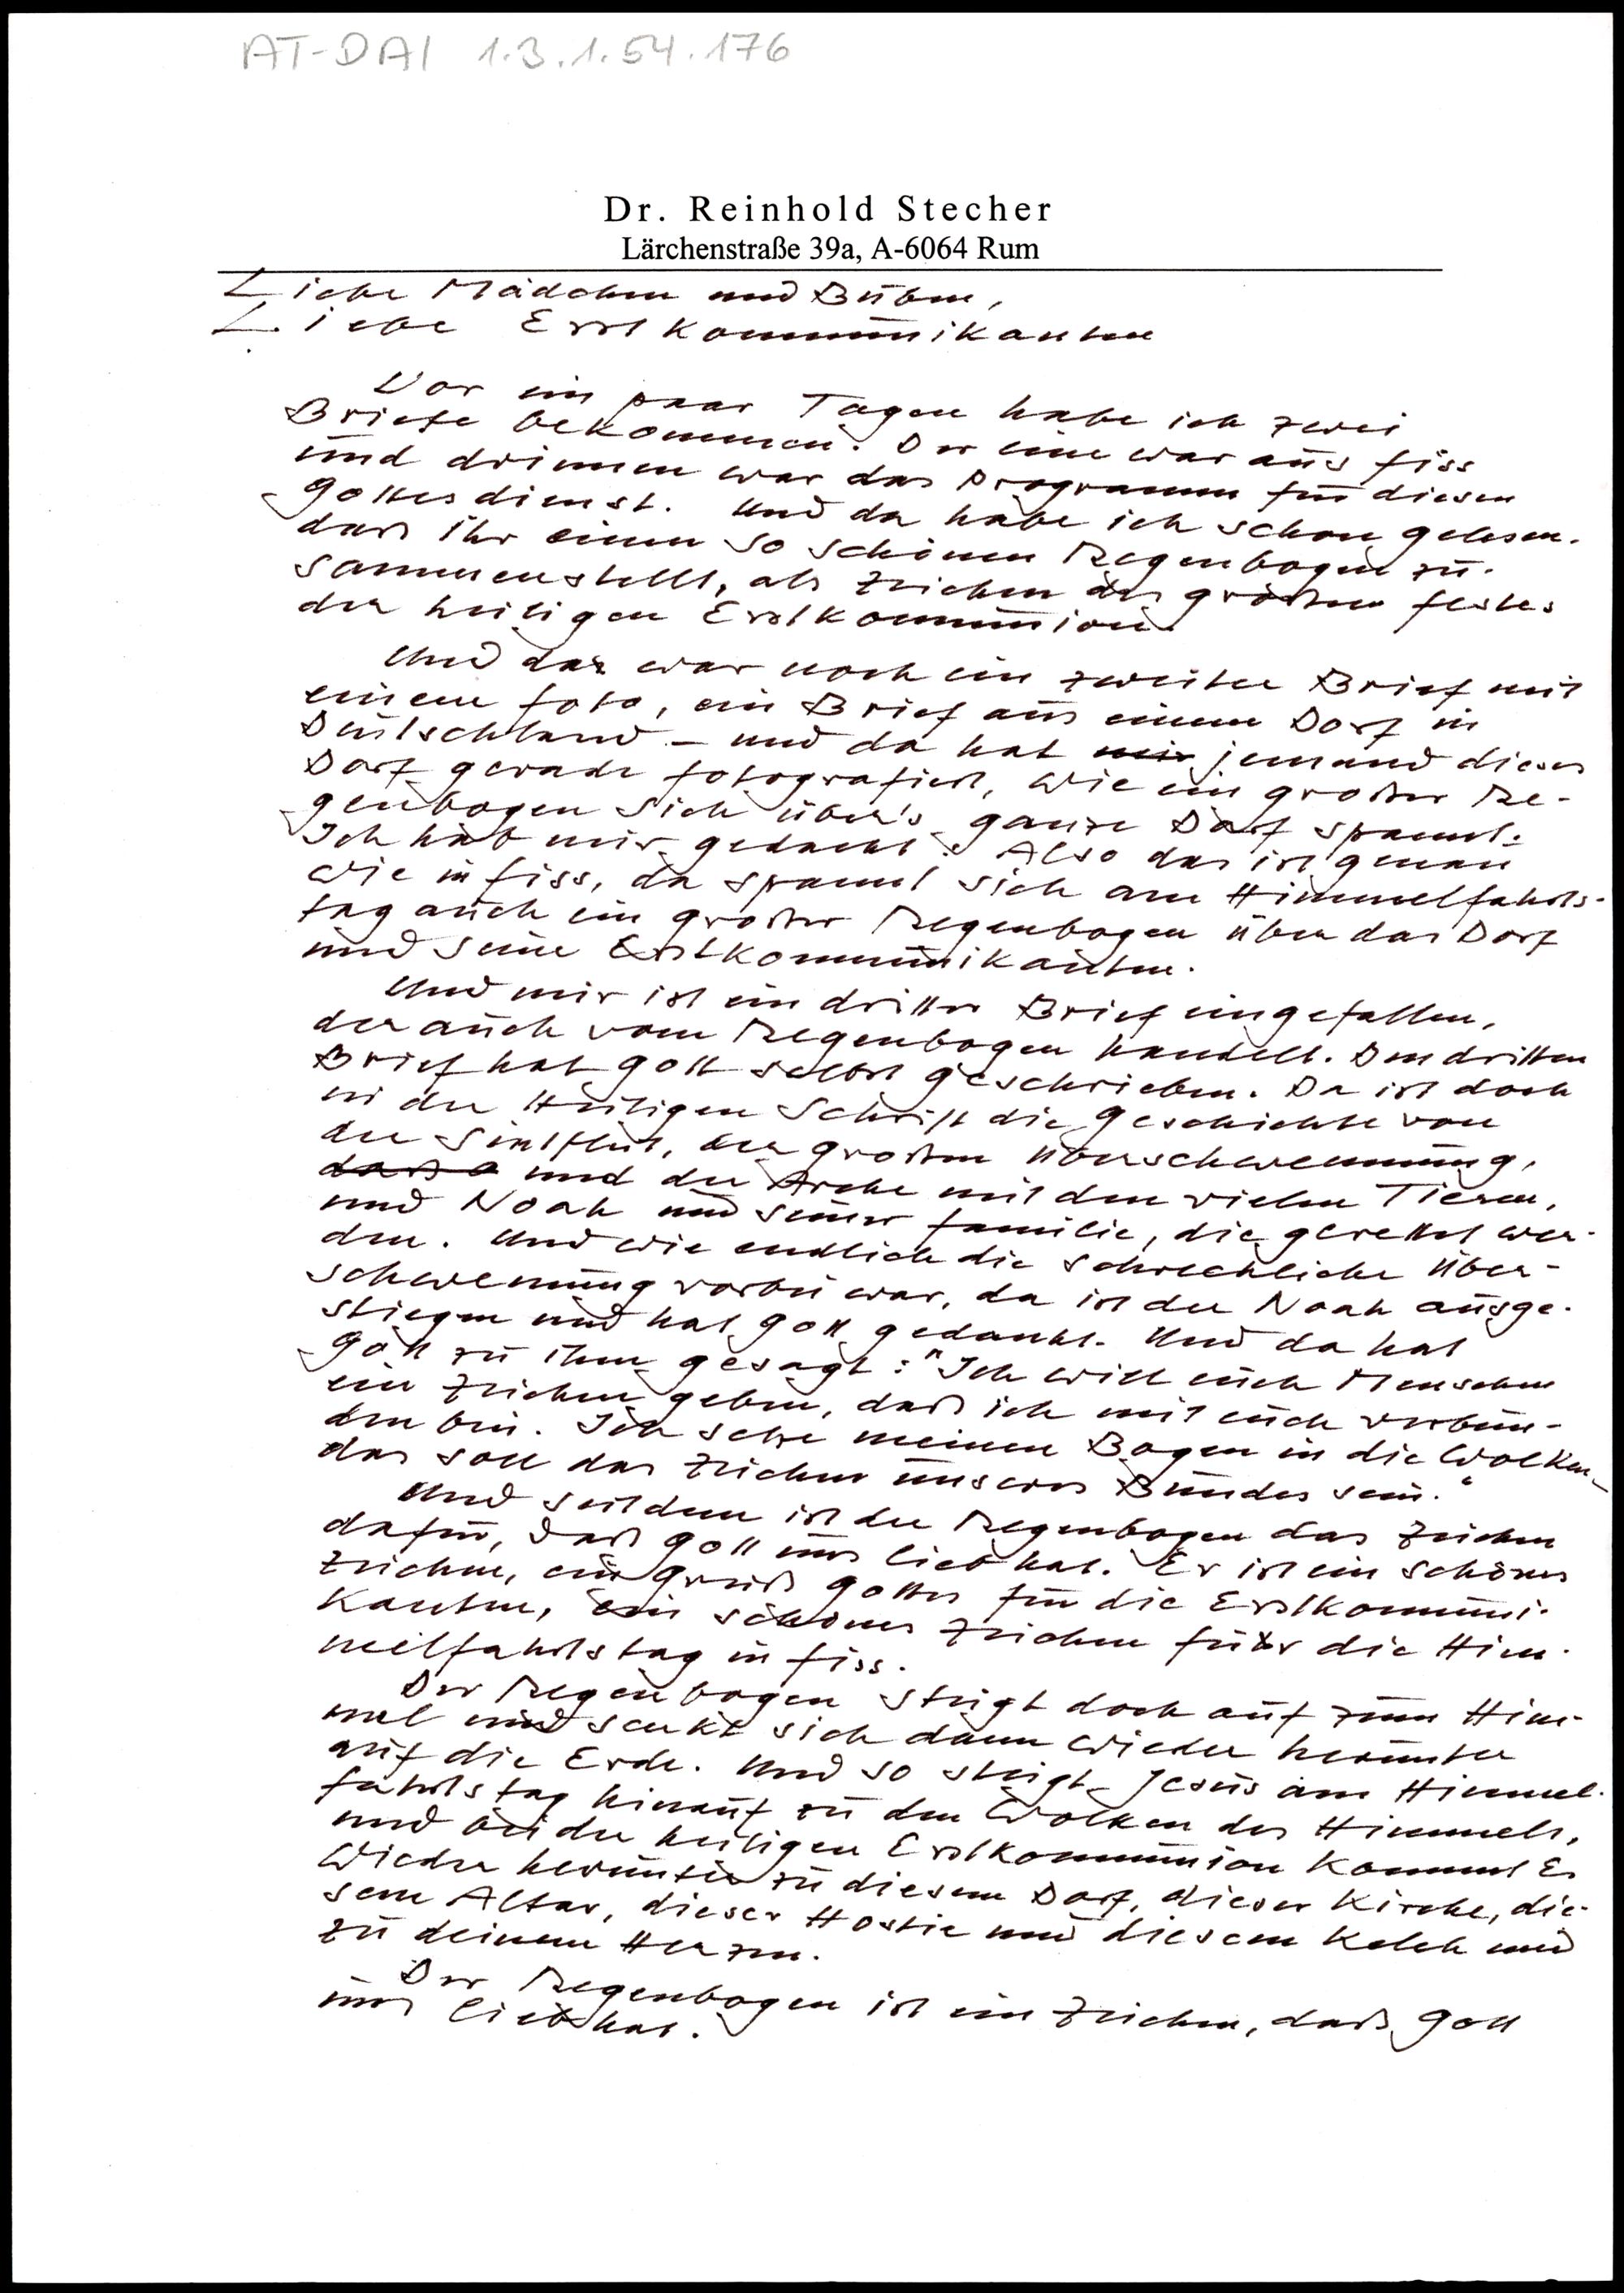 AT-DAI 1.3.1.54.176
Dr. Reinhold Stecher
Lärchenstraße 39a, A-6064 Rum
Liebe Mädchen und Buben,
Liebe Erstkommunikanten
Vor ein paar Tagen habe ich zwei
Briefe bekommen. Der eine war aus Fiss
und drinnen war das Programm für diesen
Gottesdienst. Und da habe ich schon gelesen.
daß ihr einen so schönen Regenbogen zu-
sammenstellt, als Zeichen des großen Festes
der heiligen Erstkommunion.
Und da war noch ein zweiter Brief mit
einem Foto, ein Brief aus einem Dorf in
Deutschland – und da hat mir jemand dieses
Dorf gerade fotografiert, wie ein großer Re-
genbogen sich über's ganze Dorf spannt.
Ich hab mir gedacht: Also das ist genau
wie in Fiss, da spannt sich am Himmelfahrts-
tag auch ein großer Regenbogen über das Dorf
und seine Erstkommunikanten.
Und mir ist ein dritter Brief eingefallen,
der auch vom Regenbogen handelt. Den dritten
Brief hat Gott selbst geschrieben. Da ist doch
in der Heiligen Schrift die Geschichte von
der Sintflut, der großen Überschwemmung,
daß a und der Arche mit den vielen Tieren,
und Noah und seiner Familie, die gerettet wer-
den. Und wie endlich die schreckliche Über-
schwemmung vorbei war, da ist der Noah ausge-
stiegen und hat Gott gedankt. Und da hat
Gott zu ihm gesagt: "Ich will euch Menschen
ein Zeichen geben, daß ich mit euch verbun-
den bin. Ich setze meinen Bogen in die Wolken –
das soll das Zeichen unseres Bundes sein."
Und seitdem ist der Regenbogen das Zeichen
dafür, daß Gott uns lieb hat. Er ist ein schönes
Zeichen, ein Gruß Gottes für die Erstkommuni-
kanten, ein schönes Zeichen für die Him-
melfahrtstag in Fiss.
Der Regenbogen steigt doch auf zum Him-
mel und senkt sich dann wieder herunter
auf die Erde. Und so steigt Jesus am Himmel-
fahrtstag hinauf zu den Wolken des Himmels,
und bei der heiligen Erstkommunion kommt Er
wieder herunter zu diesem Dorf, dieser Kirche, die-
sem Altar, dieser Hostie und diesem Kelch und
zu deinem Herzen.
Der Regenbogen ist ein Zeichen, daß Gott
uns lieb hat.